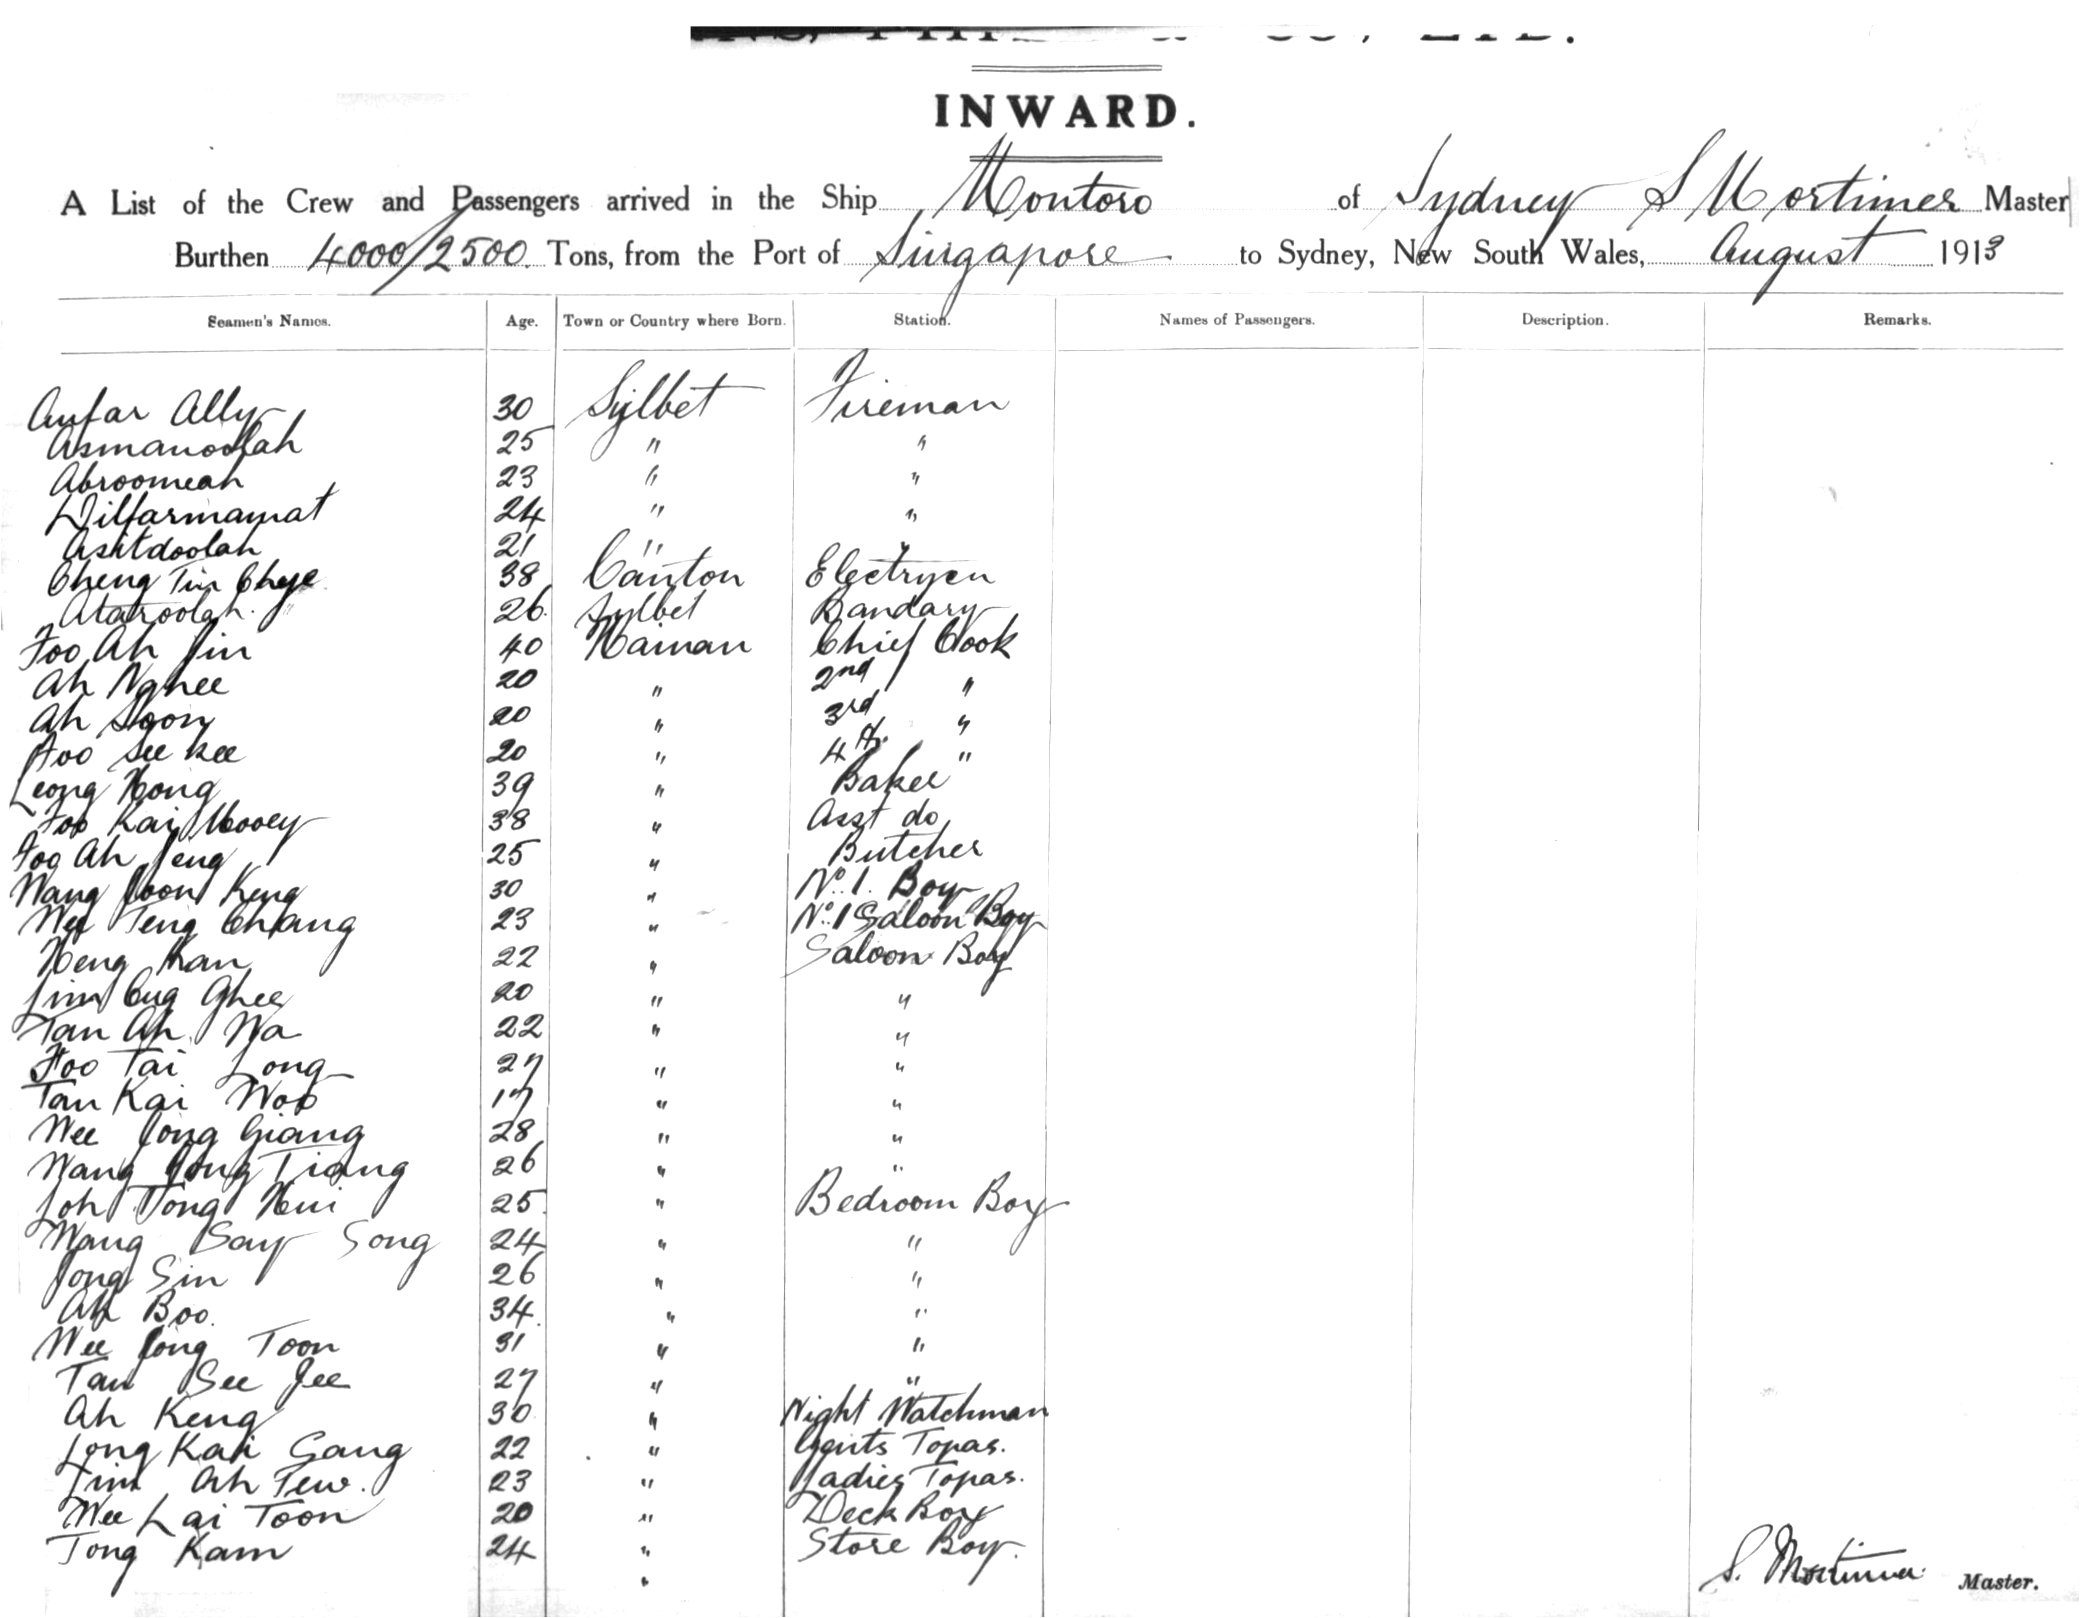 INWARD.
A List of the Crew and Passengers arrived in the Ship Montoro of Sydney S Mortimer Master
Burthen 4000/2500 Tons, from the Port of Singapore to Sydney, New South Wales, August 1913
Seamen's Names. Age. Town or Country where Born. Station. Names of Passengers. Description. Remarks.
Ally 30 Sylbet Fireman
Asmanoollah 25 " "
Abroomeah 23 " "
24 " "
21 " "
Cheng Tin 38 Canton Electrycn
Ataroolah 26 Sylbet Bandary
Foo Ah Jin 40 Hainan Chief Cook
Ah Nghee 20 " 2nd "
Ah Soon 20 " 3rd "
Foo See Kee 20 " 4th "
Leong Hong 39 " Baker
Foo Kai Mooey 38 " Asst do
Foo Ah Jeng 25 " Butcher
Wang Joon Keng 30 " No. 1. Boy
Wee Teng Chang 23 " No. 1 Saloon Boy
Heng Kan 22 " Saloon Boy
Lim Ghee 20 " "
Tan Ah Wa 22 " "
Foo Tai Long 27 " "
Tan Kai Woo 17 " "
Wee Jong Giang 28 " "
Wang Jong Tiang 26 " "
Loh Tong Hui 25 " Bedroom Boy
Wang Say Song 24 " "
Jong Sin 26 " "
Ah Boo. 34 " "
Wee Jong Toon 31 " "
Tan See Jee 27 " "
Ah Keng 30 " Night Watchman
Long Kah Sang 22 " Gents Topas.
Lim Ah Tew. 23 " Ladies Topas.
Wee Lai Toon 20 " Deck Boy
Tong Kam 24 " Store Boy.
"
S. Mortimer Master.